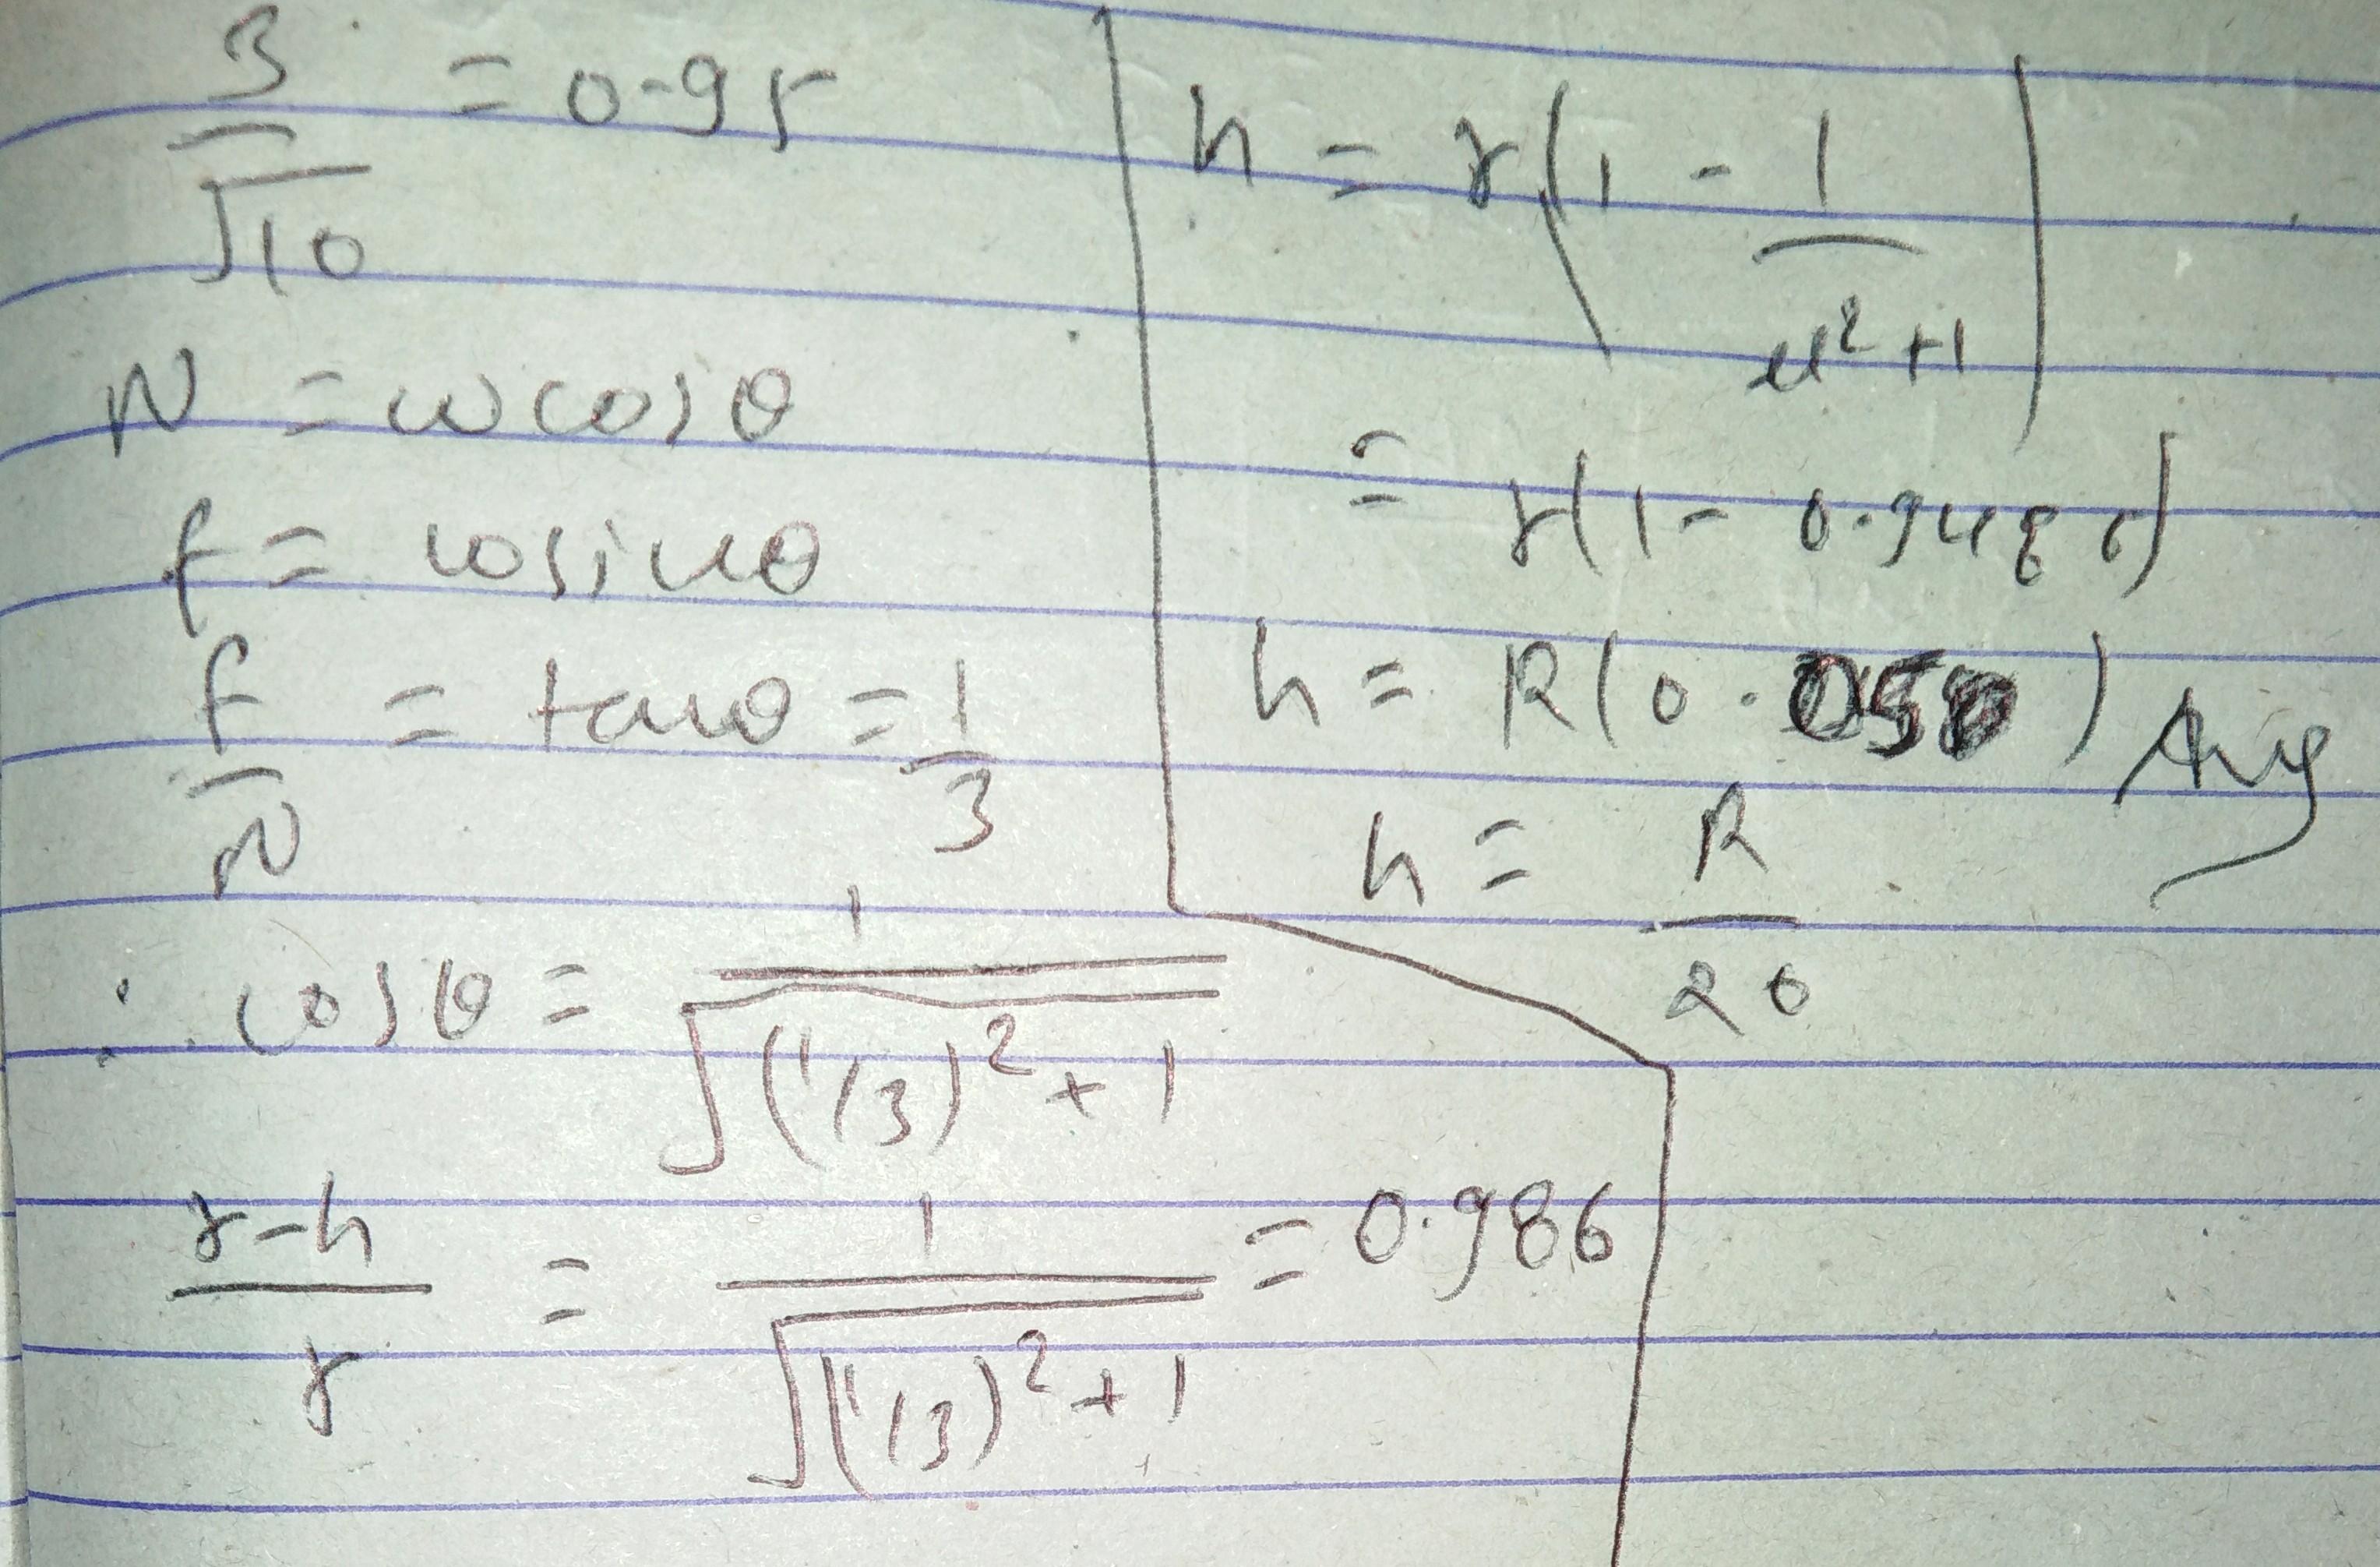 3/√10 = 0.95
N = w cos θ
f = w sin θ
f/N = tan θ = 1/3
∴ cos θ = 1/√((1/3)² + 1)
r-h/r = 1/√((1/3)² + 1) = 0.986
h = r(1 - 1/μ²+1)
= r(1 - 0.9486)
h = R(0.050) Ans
h = R/20